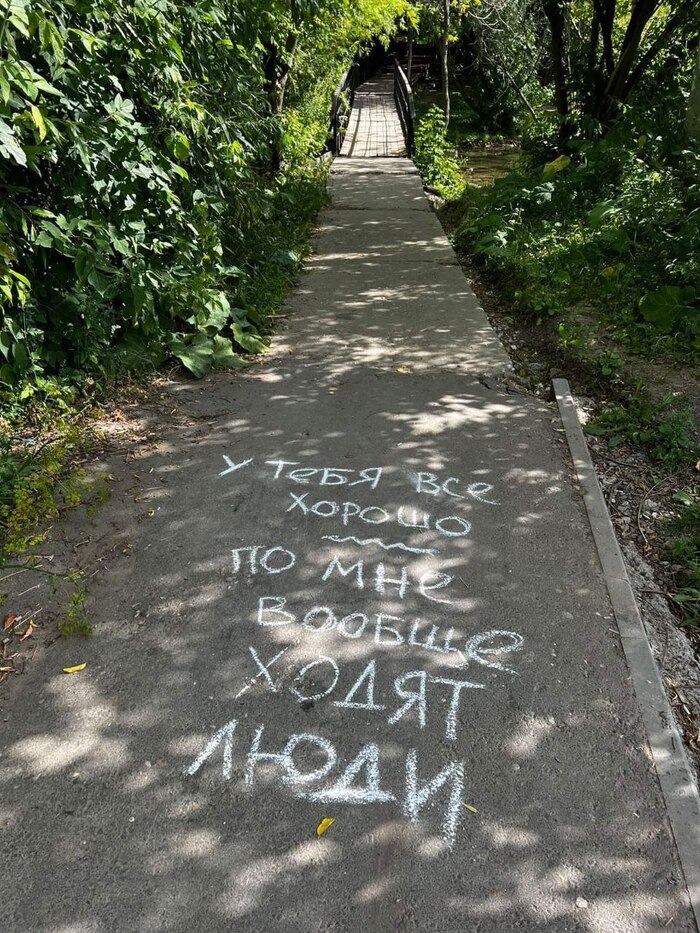 У ТЕБЯ ВСЕ
ХОРОШО
ПО МНЕ
ВООБЩЕ
ХОДЯТ
ЛЮДИ